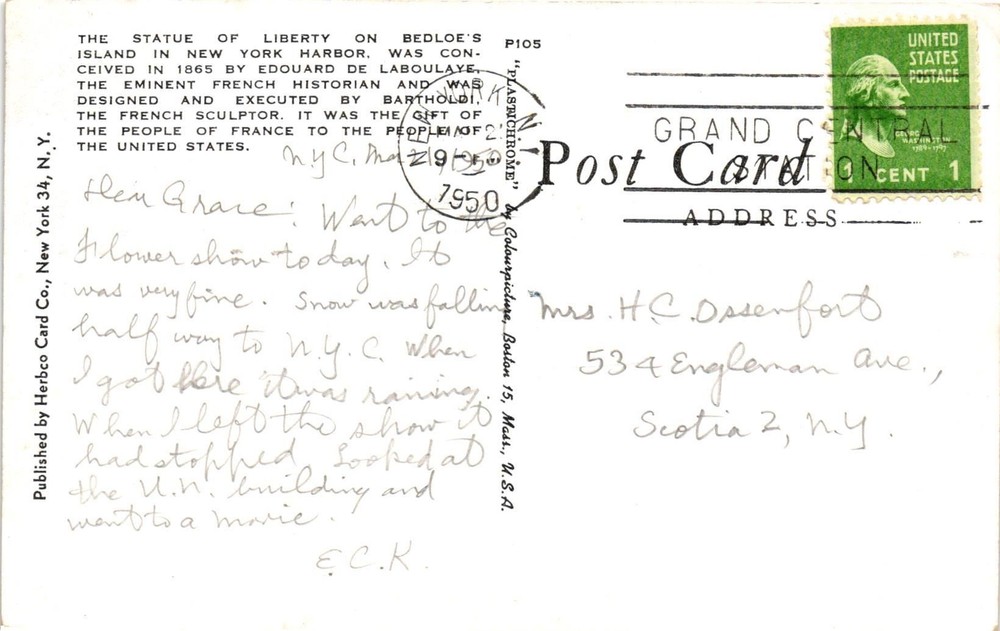 THE STATUE OF LIBERTY ON BEDLOE'S
ISLAND IN NEW YORK HARBOR, WAS CON-
CEIVED IN 1865 BY EDOUARD DE LABOULAYE,
THE EMINENT FRENCH HISTORIAN AND WAS
DESIGNED AND EXECUTED BY BARTHOLDI,
THE FRENCH SCULPTOR. IT WAS THE GIFT OF
THE PEOPLE OF FRANCE TO THE PEOPLE OF
THE UNITED STATES.
P105
Published by Herbco Card Co., New York 34, N. Y.
N.Y.C. Mar. 1950
Dear Grace: Went to the
Flower show today. It
was very fine. Snow was falling
half way to N.Y.C. When
I got here it was raining.
When I left the show it
had stopped. Looked at
the U.N. building and
went to a movie.
E.C.K.
"PLASTICHROME" by Colourpicture, Boston 15, Mass., U.S.A.
NEW YORK, N.
1950
GRAND CENTRAL
STATION
UNITED
STATES
POSTAGE
GEORGE
WASHINGTON
1789-1797
1 CENT 1
Post Card
ADDRESS
Mrs. H.C. Ossenfort
534 Engleman Ave.,
Scotia 2, N.Y.